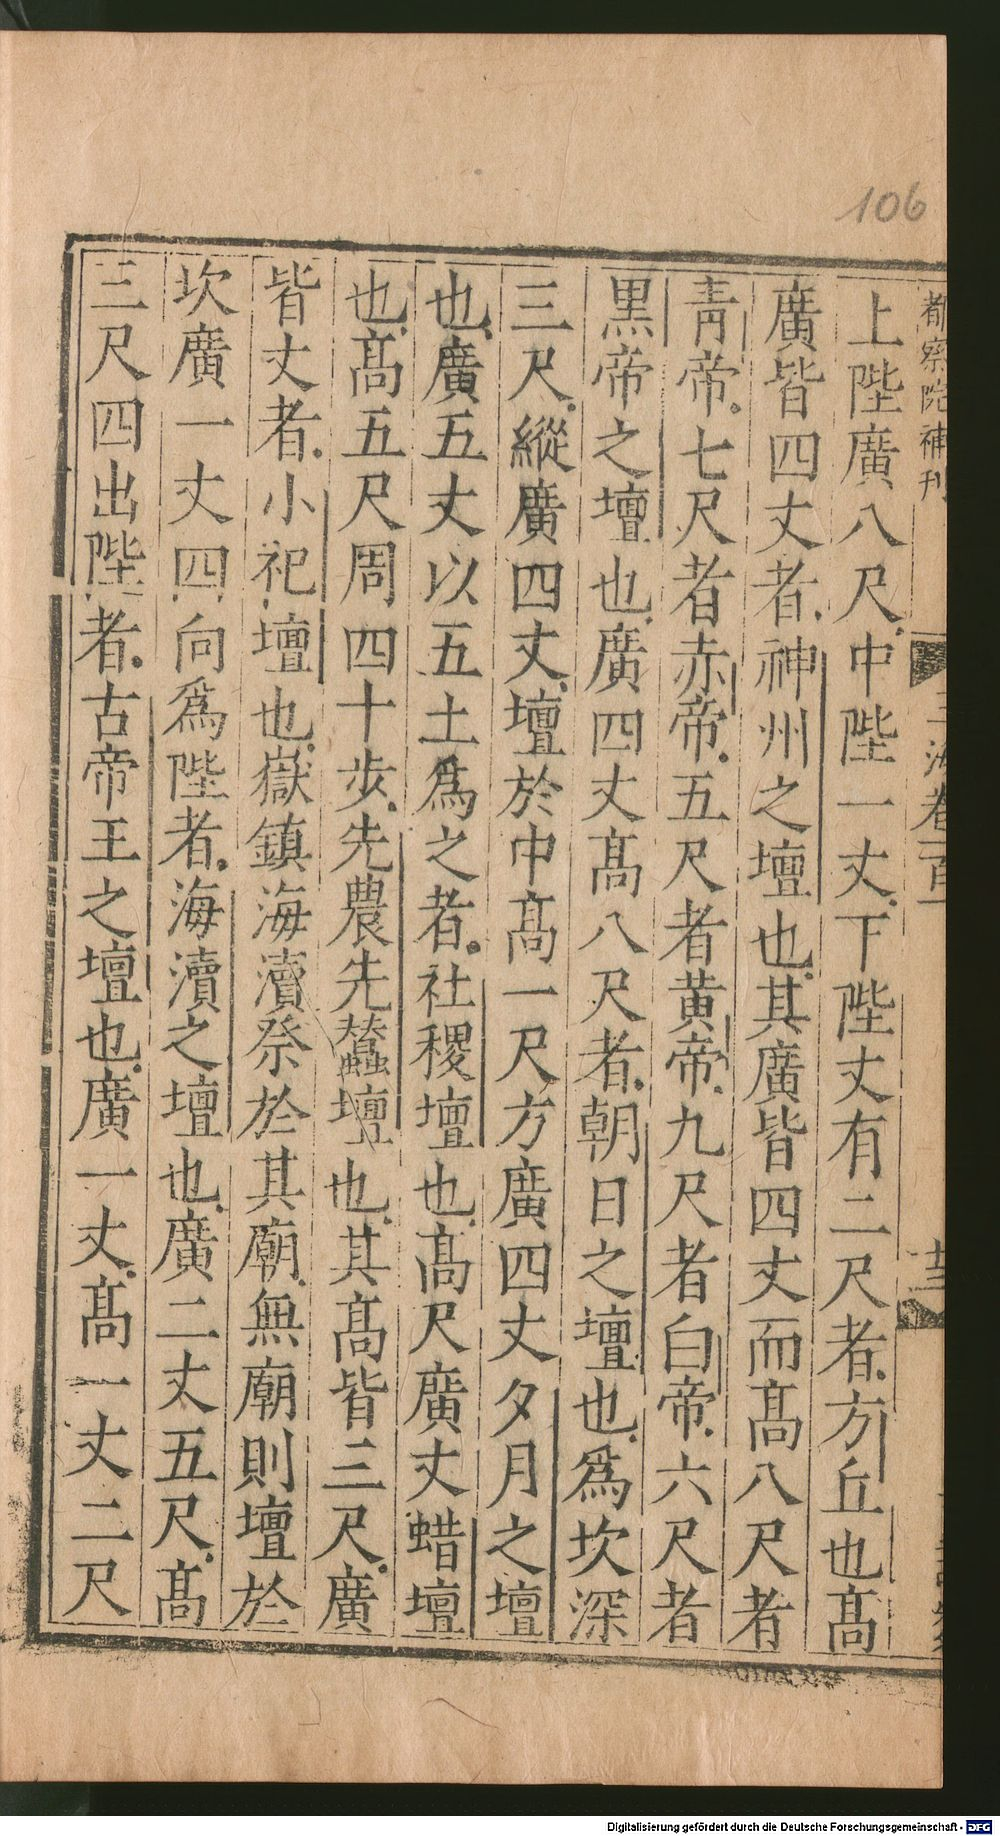 106
都察院補刋
玉海卷百一
上陛廣八尺中陛一丈下陛丈有二尺者方丘也髙
廣皆四丈者神州之壇也其廣皆四丈而髙八尺者
青帝七尺者赤帝五尺者黄帝九尺者白帝六尺者
黒帝之壇也廣四丈髙八尺者朝日之壇也爲坎深
三尺縱廣四丈壇於中髙一尺方廣四丈夕月之壇
也廣五丈以五土爲之者社稷壇也髙尺廣丈蜡壇
也髙五尺周四十步先農先蠶壇也其髙皆三尺廣
皆丈者小祀壇也嶽鎮海瀆祭於其廟無廟則壇於
坎廣一丈四向爲陛者海瀆之壇也廣二丈五尺髙
三尺四出陛者古帝王之壇也廣一丈髙一丈二尺
Digitalisierung gefördert durch die Deutsche Forschungsgemeinschaft - DFG